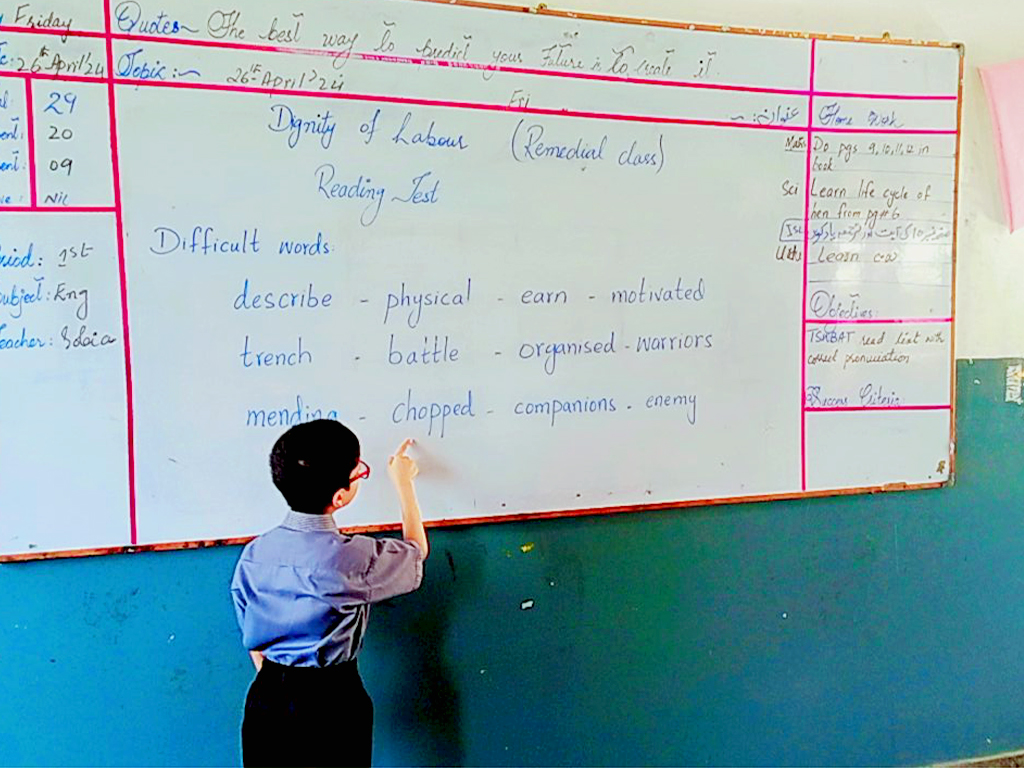 Friday
Quotes~ The best way to predict your Future is to create it.
26th April'24
Topic:~ 26th April'24
Fri
عنوان:~
Home Work
29
20
09
Nil
Dignity of Labour (Remedial class)
Reading Test
Difficult words:
describe - physical - earn - motivated
trench - battle - organised - warriors
mending - chopped - companions - enemy
Period: 1st
Subject: Eng
Teacher:
Maths Do pgs 9,10,11,12 in book
Sci Learn life cycle of
hen from pg# 6
Isl
Urdu Learn
Objectives:
TSWBAT read list with
correct pronunciation
Success Criteria: